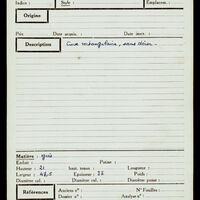 Indice : Style : Emplacem. :
Origine
Prix Date acquis. : Date inscr. :
Description Cuve rectangulaire, sans décor.
Matière : grès
Enfant : Patine :
Hauteur : 21 haut. totem :
Largeur : 48,5 Epaisseur : 28 Poids :
Diamètre col. : Diamètre panse :
Références Anciens n° : N° Feuilles :
Dossier n° : Analyse n° :